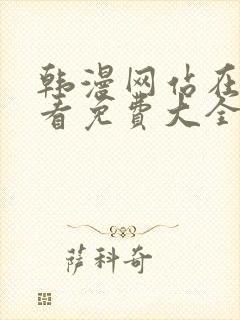 韩漫网站在
看免费大全
萨科奇